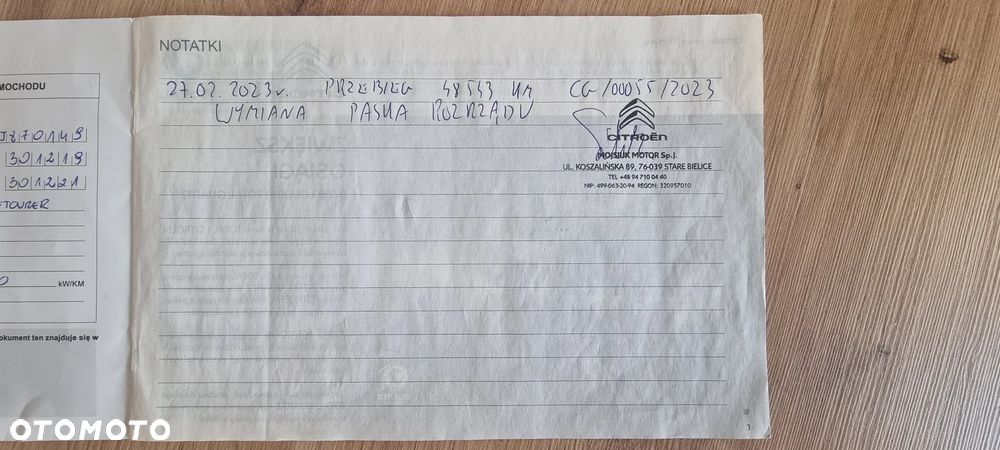 MOCHODU
J870149
301219
301221
ETOURER
kW/KM
okument ten znajduje się w
NOTATKI
27.02.2023r. PRZEBIEG 48543 KM CG/00055/2023
WYMIANA PASKA ROZRZĄDU
CITROËN
MOJSIUK MOTOR Sp.j.
UL. KOSZALIŃSKA 89, 76-039 STARE BIELICE
TEL +48 94 710 04 40
NIP: 499-063-20-94 REGON: 320957010
1
OTOMOTO